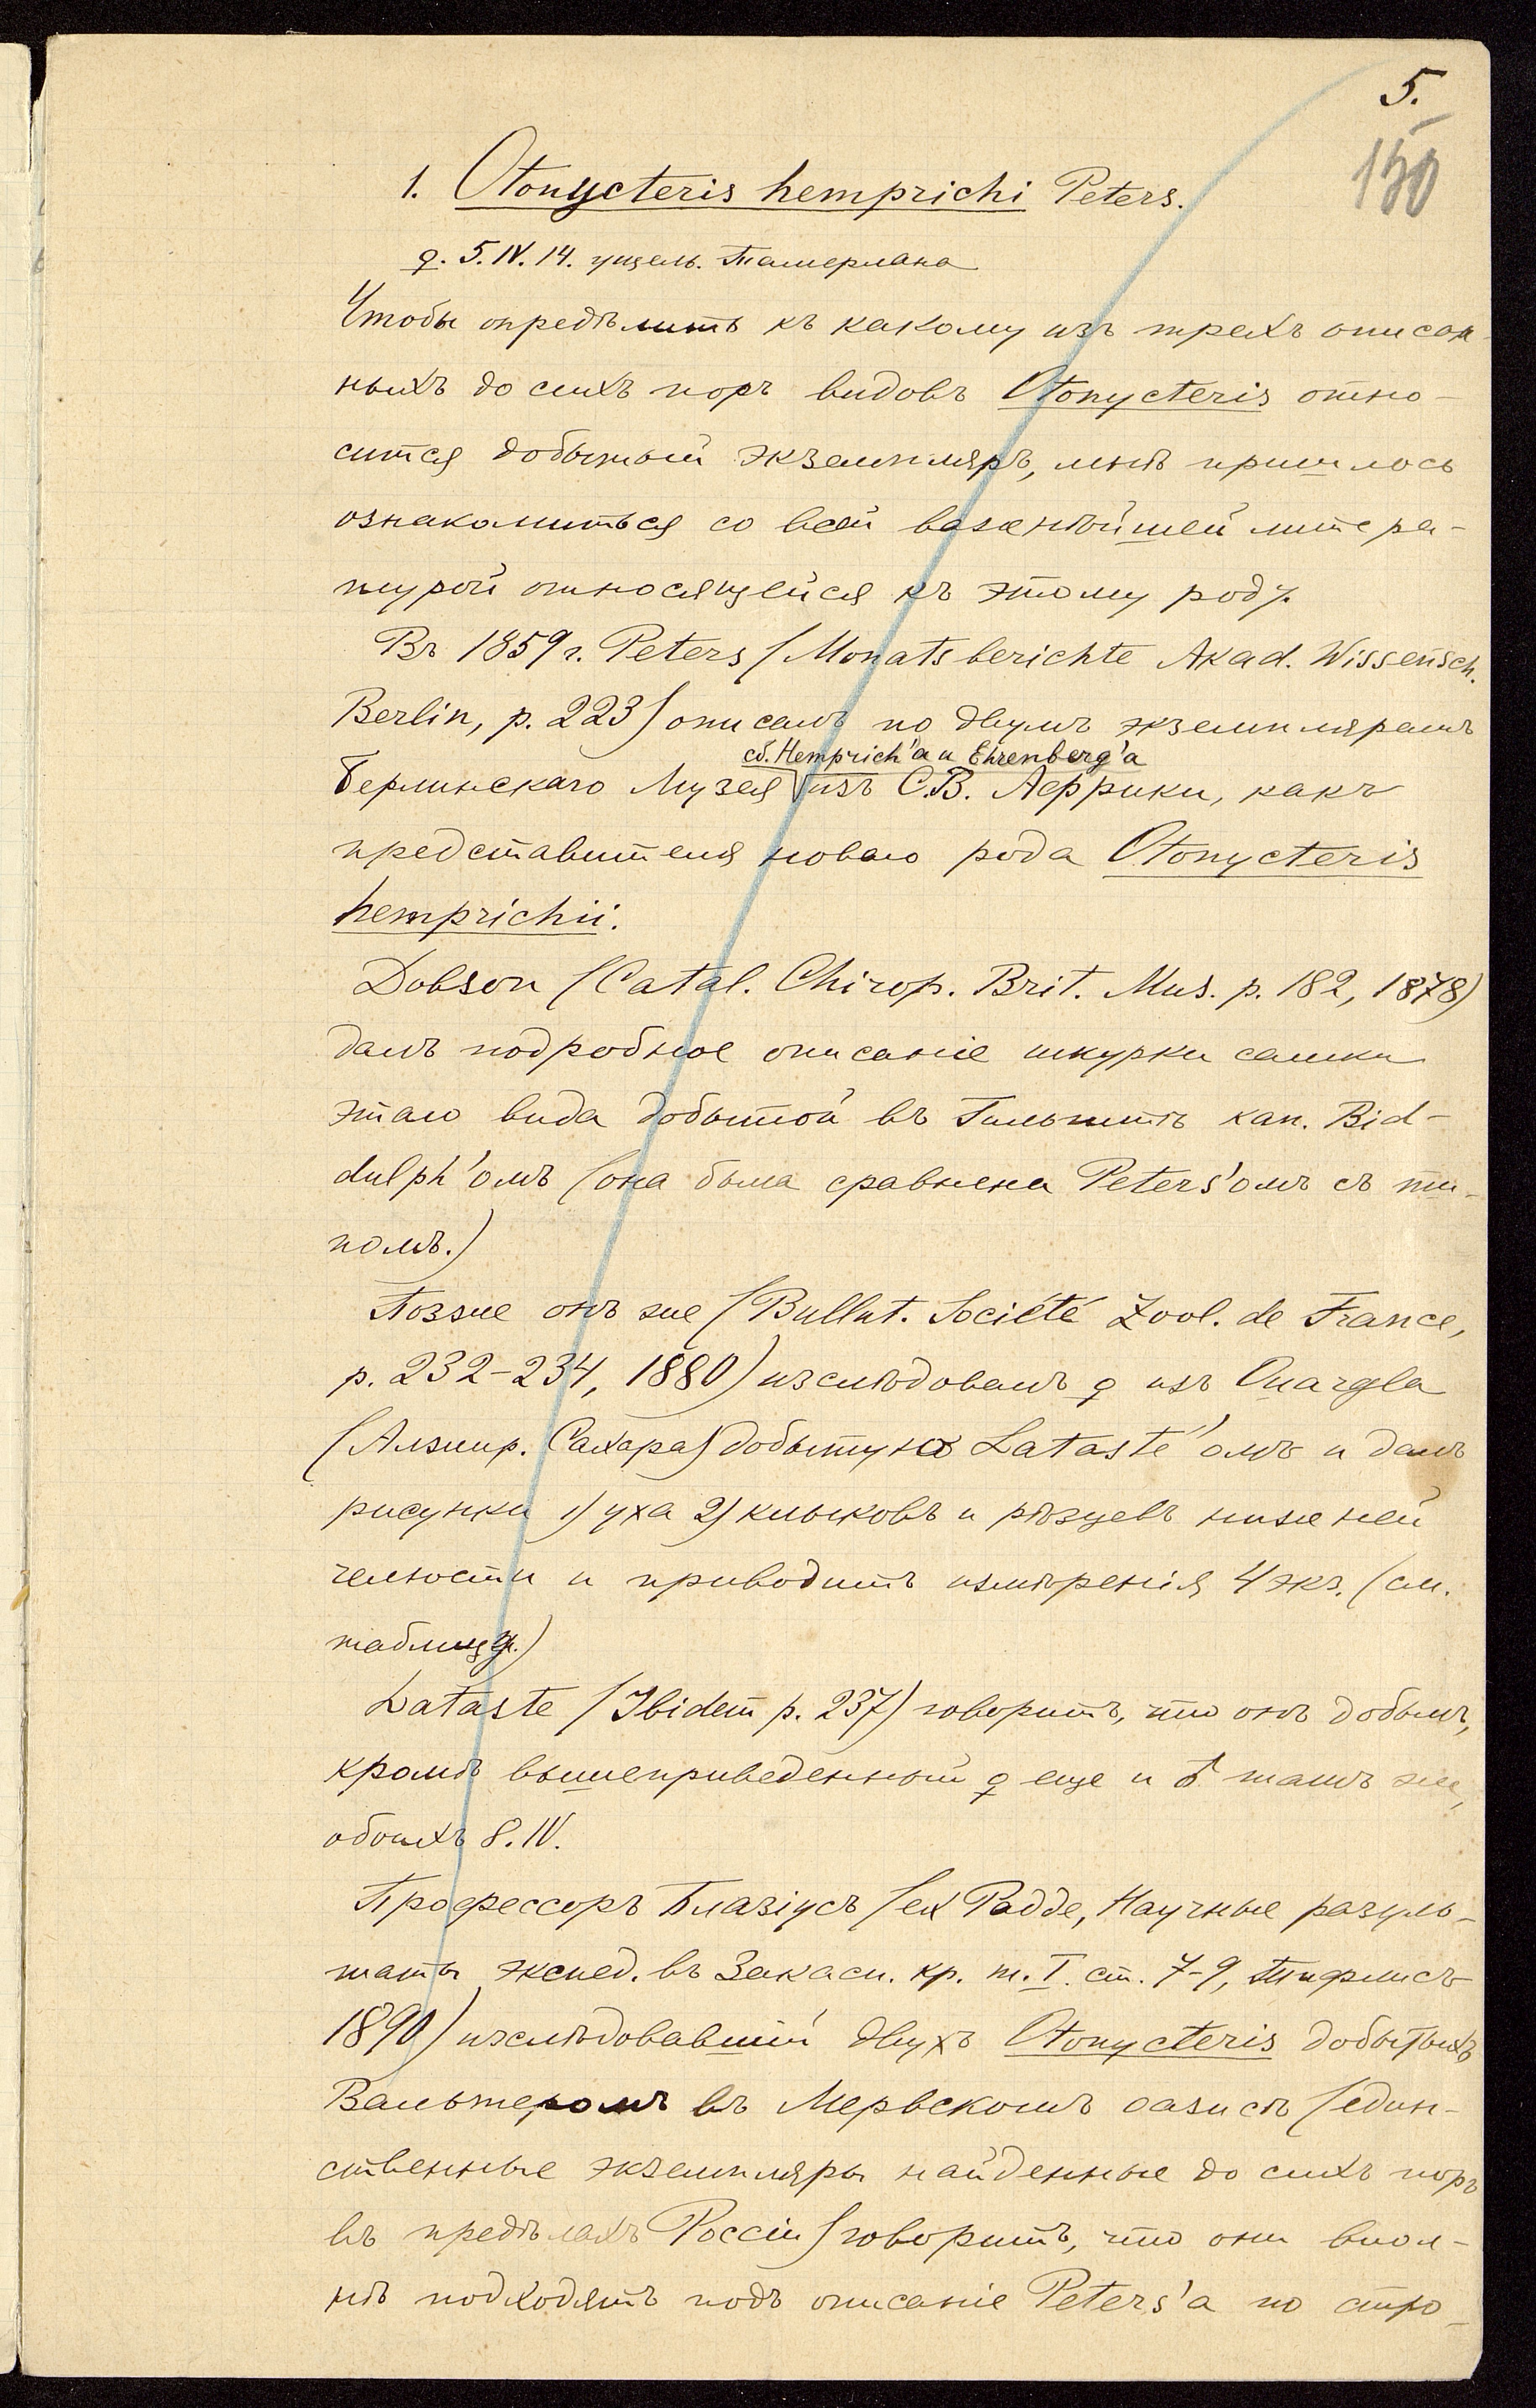 5.
150
1. Otonycteris hemprichi Peters.
♀. 5.IV.14. ущель. Тамерлана
Чтобы опредѣлить къ какому изъ трехъ описан-
ныхъ до сихъ поръ видовъ Otonycteris отно-
сится добытый экземпляръ, мнѣ пришлось
ознакомиться со всей важнѣйшей литера-
турой относящейся къ этому роду.
Въ 1859 г. Peters (Monatsberichte Akad. Wissensch.
Berlin, p. 223) описалъ по двумъ экземплярамъ
сб. Hemprich'а и Ehrenberg'а
Берлинскаго Музея изъ С.В. Африки, какъ
представителя новаго рода Otonycteris
hemprichii.
Dobson (Catal. Chirop. Brit. Mus. p. 182, 1878)
далъ подробное описаніе шкурки самки
этаго вида добытой въ Гильгитѣ кап. Bid-
dulph'омъ (она была сравнена Peters'омъ съ ти-
помъ.)
Позже онъ же (Bullet. Société Zool. de France,
p. 232-234, 1880) изслѣдовалъ ♀ изъ Ouargla
(Алжир. Сахара) добытую Lataste'омъ и далъ
рисунки 1) уха 2) клыковъ и рѣзцевъ нижней
челюсти и приводитъ измѣренія 4 экз. (см.
таблицу.)
Lataste (Ibidem p. 237) говоритъ, что онъ добылъ,
кромѣ вышеприведенный ♀ еще и ♂ тамъ же,
обоихъ 8.IV.
Профессоръ Блазіусъ (ex Радде, Научные резуль-
таты экспед. въ Закасп. кр. т. I. ст. 7-9, Тифлисъ
1890) изслѣдовавшій двухъ Otonycteris добытыхъ
Вальтеромъ въ Мервскомъ оазисѣ (един-
ственные экземпляры найденные до сихъ поръ
въ предѣлахъ Россіи) говоритъ, что они впол-
нѣ подходятъ подъ описаніе Peters'а по стро-